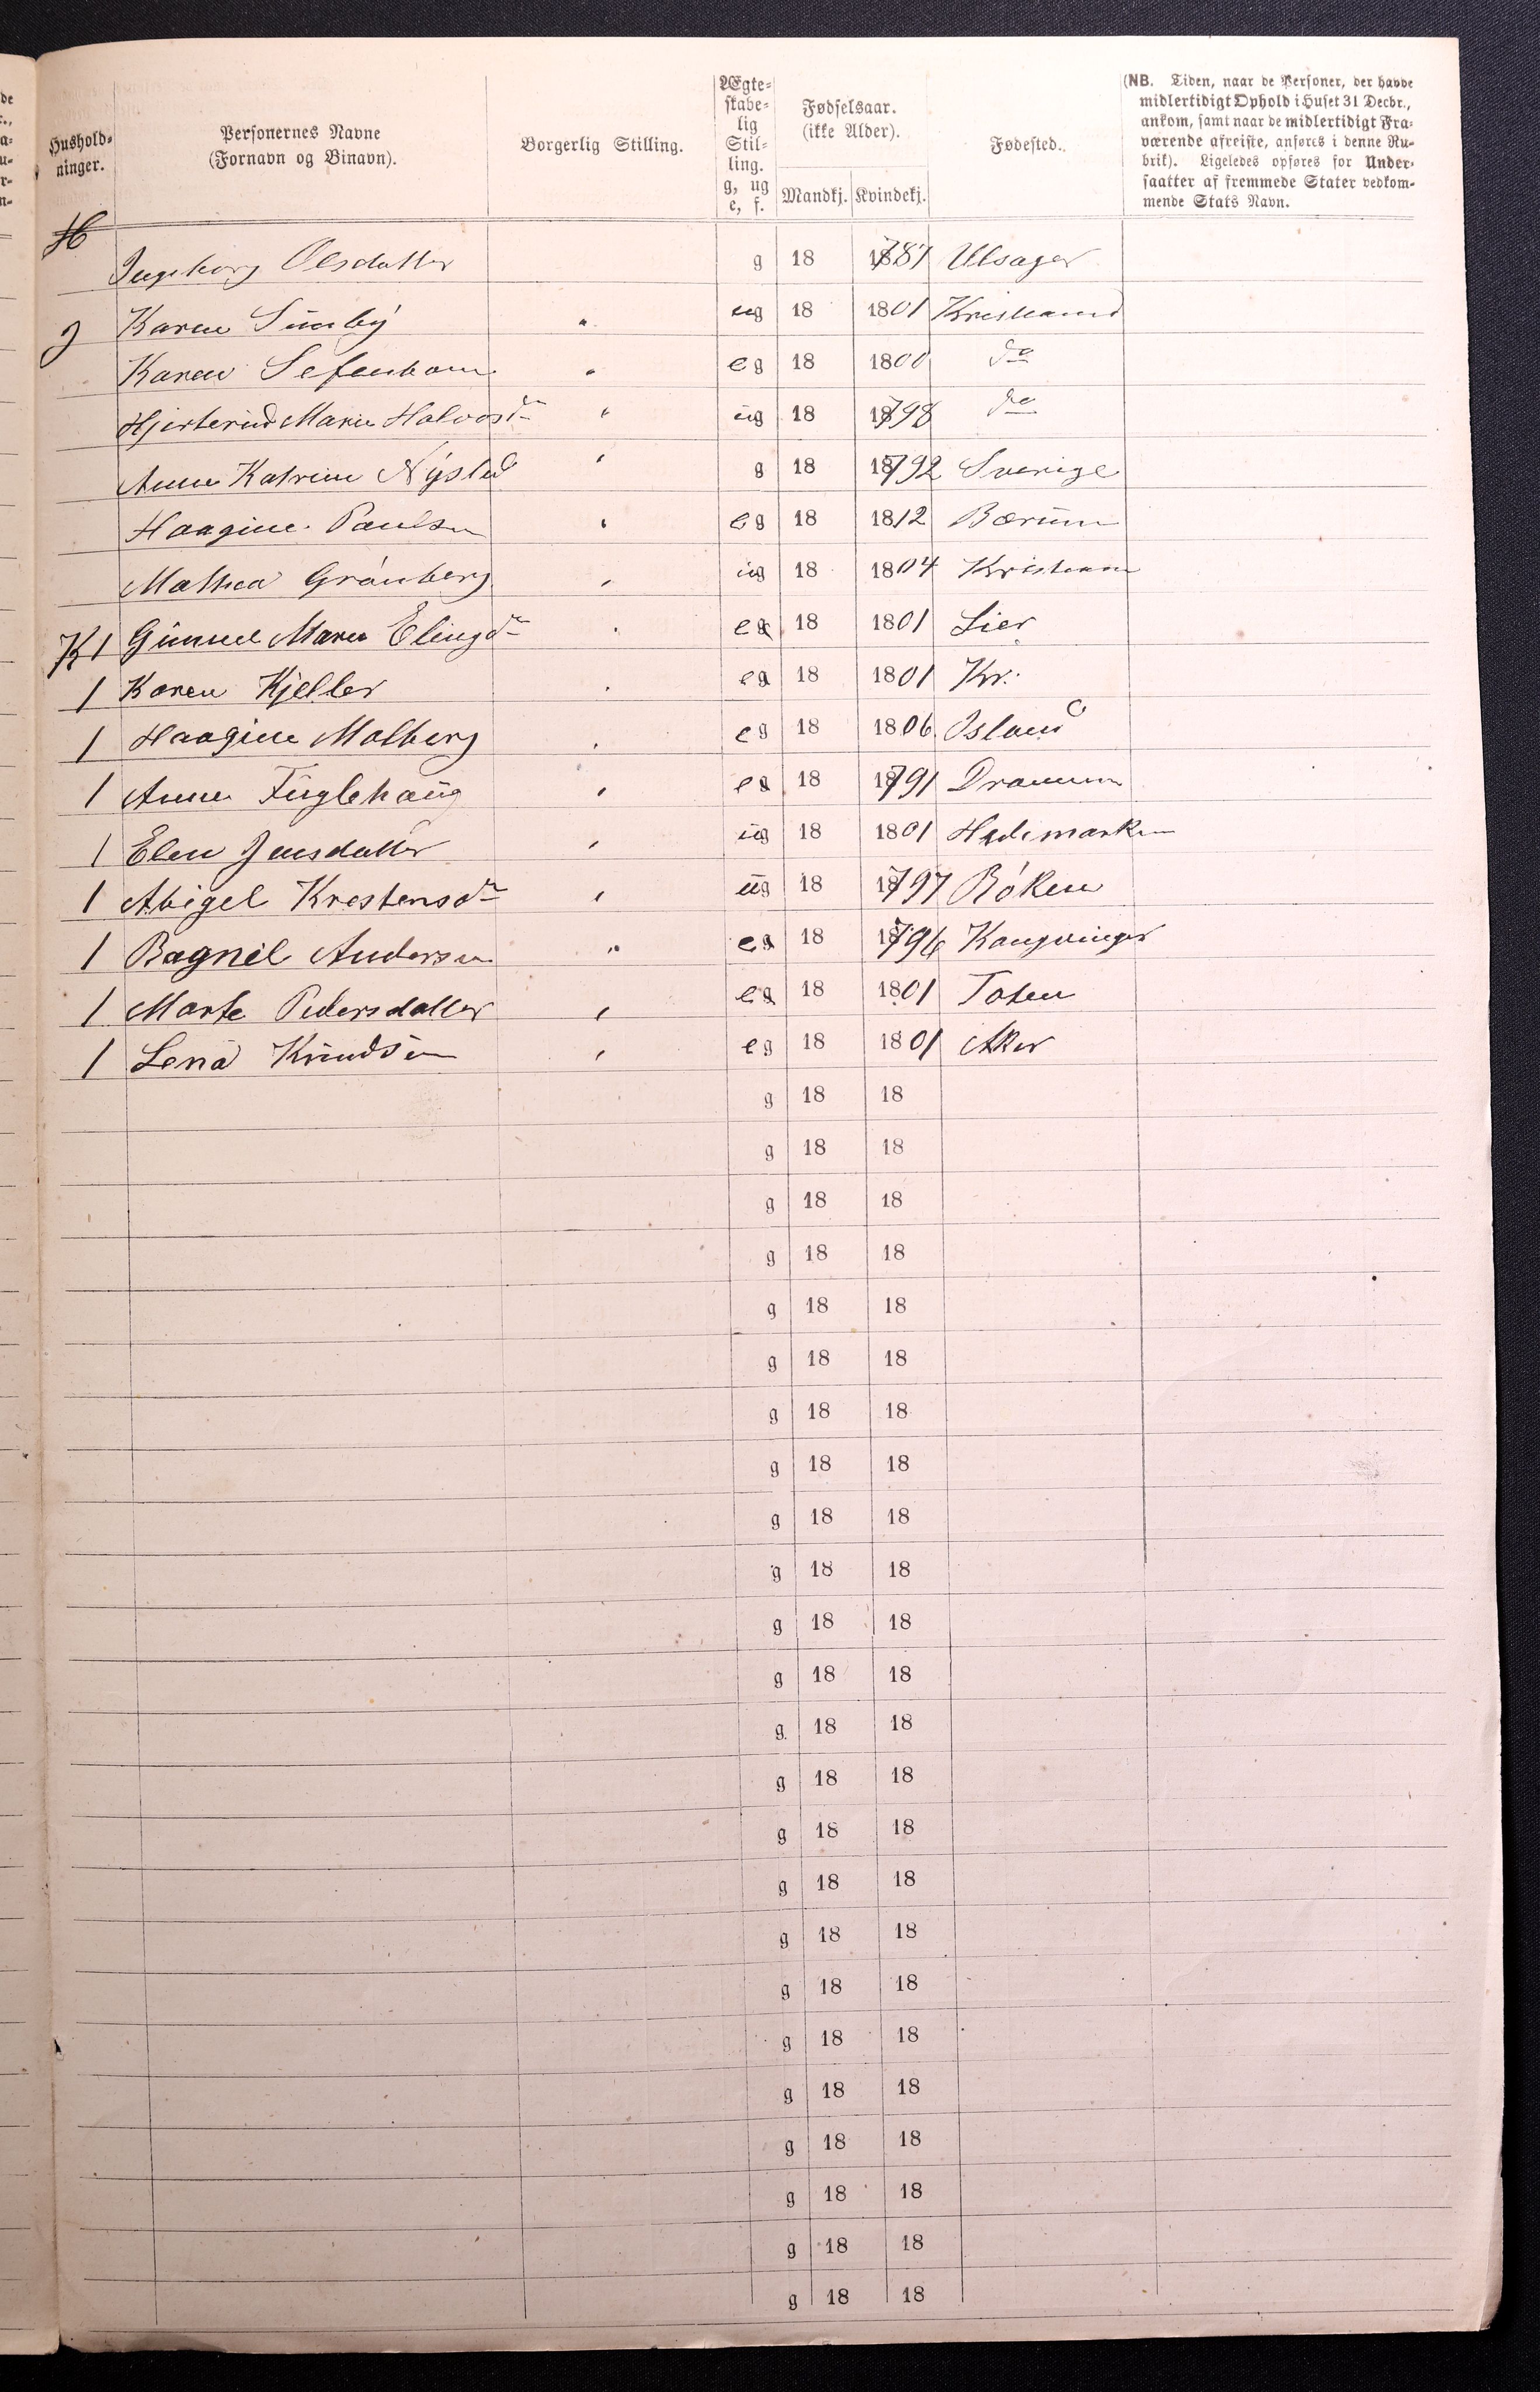 Hushold-
ninger.
Personernes Navne
(Fornavn og Binavn).
Borgerlig Stilling.
Ægte-
skabe-
lig
Stil-
ling.
g, ug
e, f.
Fødselsaar.
(ikke Alder).
Mandkj. Kvindekj.
Fødested.
(NB. Tiden, naar de Personer, der havde
midlertidigt Ophold i Huset 31 Decbr.,
ankom, samt naar de midlertidigt Fra-
værende afreiste, anføres i denne Ru-
brik). Ligeledes opføres for Under-
saatter af fremmede Stater vedkom-
mende Stats Navn.
Ingeborg Olsdatter g 18 1787 Ulsager
J Karen Sünbÿ " ug 18 1801 Kristiania
Karen " eg 18 1800 do
Marie Halvosd " ug 18 1798 do
Anne Katrine Nÿsted " g 18 1792 Sverige
Haagine Paulsen " eg 18 1812 Bærüm
Mathea Grönberg " ug 18 1804 Kristiania
K 1 Günnel Marie Elingd " eg 18 1801 Lier
1 Karen Kjeller " eg 18 1801 Kr.
1 Haagine Malberg " eg 18 1806 Island
1 Anne Füglehaüg " eg 18 1791 Drammen
1 Elen Jensdatter " üg 18 1801 Hedemarken
1 Abigel Krestensd " üg 18 1797 Röken
1 Ragnil Andersen " eg 18 1796 Kongvinger
1 Marte Pedersdatter " eg 18 1801 Toten
1 Lena Knüdsen " eg 18 1801 Aker
g 18 18
g 18 18
g 18 18
g 18 18
g 18 18
g 18 18
g 18 18
g 18 18
g 18 18
g 18 18
g 18 18
g 18 18
g 18 18
g 18 18
g 18 18
g 18 18
g 18 18
g 18 18
g 18 18
g 18 18
g 18 18
g 18 18
g 18 18
g 18 18